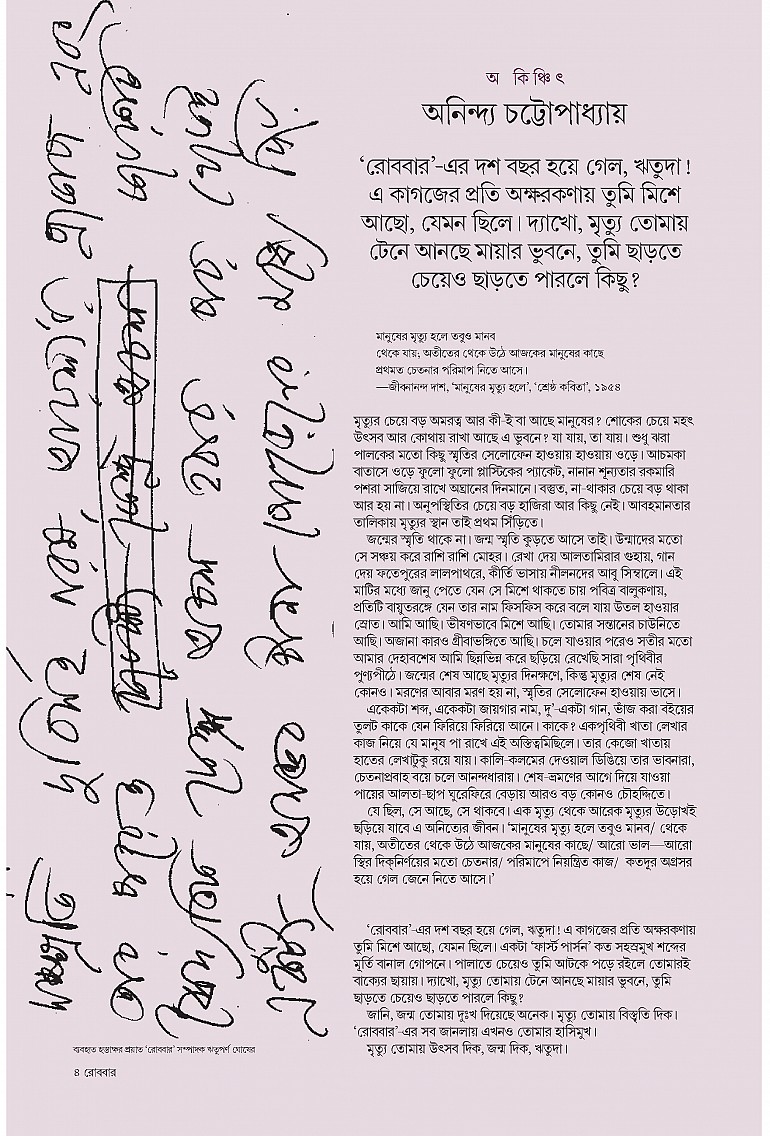 অ কিঞ্চিৎ
অনিন্দ্য চট্টোপাধ্যায়
‘রোববার’-এর দশ বছর হয়ে গেল, ঋতুদা!
এ কাগজের প্রতি অক্ষরকণায় তুমি মিশে
আছো, যেমন ছিলে। দ্যাখো, মৃত্যু তোমায়
টেনে আনছে মায়ার ভুবনে, তুমি ছাড়তে
চেয়েও ছাড়তে পারলে কিছু?
মানুষের মৃত্যু হলে তবুও মানব
থেকে যায়; অতীতের থেকে উঠে আজকের মানুষের কাছে
প্রথমত চেতনার পরিমাপ নিতে আসে।
—জীবনানন্দ দাশ, ‘মানুষের মৃত্যু হলে’, ‘শ্রেষ্ঠ কবিতা’, ১৯৫৪
মৃত্যুর চেয়ে বড় অমরত্ব আর কী-ই বা আছে মানুষের? শোকের চেয়ে মহৎ
উৎসব আর কোথায় রাখা আছে এ ভুবনে? যা যায়, তা যায়। শুধু ঝরা
পালকের মতো কিছু স্মৃতির সেলোফেন হাওয়ায় হাওয়ায় ওড়ে। আচমকা
বাতাসে ওড়ে ফুলো ফুলো প্লাস্টিকের প্যাকেট, নানান শূন্যতার রকমারি
পশরা সাজিয়ে রাখে অঘ্রানের দিনমানে। বস্তুত, না-থাকার চেয়ে বড় থাকা
আর হয় না। অনুপস্থিতির চেয়ে বড় হাজিরা আর কিছু নেই। আবহমানতার
তালিকায় মৃত্যুর স্থান তাই প্রথম সিঁড়িতে।
জন্মের স্মৃতি থাকে না। জন্ম স্মৃতি কুড়তে আসে তাই। উন্মাদের মতো
সে সঞ্চয় করে রাশি রাশি মোহর। রেখা দেয় আলতামিরার গুহায়, গান
দেয় ফতেপুরের লালপাথরে, কীর্তি ভাসায় নীলনদের আবু সিম্বালে। এই
মাটির মধ্যে জানু পেতে যেন সে মিশে থাকতে চায় পবিত্র বালুকণায়,
প্রতিটি বায়ুতরঙ্গে যেন তার নাম ফিসফিস করে বলে যায় উতল হাওয়ার
স্রোত। আমি আছি। ভীষণভাবে মিশে আছি। তোমার সন্তানের চাউনিতে
আছি। অজানা কারও গ্রীবাভঙ্গিতে আছি। চলে যাওয়ার পরেও সতীর মতো
আমার দেহাবশেষ আমি ছিন্নভিন্ন করে ছড়িয়ে রেখেছি সারা পৃথিবীর
পুণ্যপীঠে। জন্মের শেষ আছে মৃত্যুর দিনক্ষণে, কিন্তু মৃত্যুর শেষ নেই
কোনও। মরণের আবার মরণ হয় না, স্মৃতির সেলোফেন হাওয়ায় ভাসে।
একেকটা শব্দ, একেকটা জায়গার নাম, দু’-একটা গান, ভাঁজ করা বইয়ের
তুলট কাকে যেন ফিরিয়ে ফিরিয়ে আনে। কাকে? একপৃথিবী খাতা লেখার
কাজ নিয়ে যে মানুষ পা রাখে এই অস্তিত্বমিছিলে। তার কেজো খাতায়
হাতের লেখাটুকু রয়ে যায়। কালি-কলমের দেওয়াল ডিঙিয়ে তার ভাবনারা,
চেতনাপ্রবাহ বয়ে চলে আনন্দধারায়। শেষ-ভ্রমণের আগে দিয়ে যাওয়া
পায়ের আলতা-ছাপ ঘুরেফিরে বেড়ায় আরও বড় কোনও চৌহদ্দিতে।
যে ছিল, সে আছে, সে থাকবে। এক মৃত্যু থেকে আরেক মৃত্যুর উড়োখই
ছড়িয়ে যাবে এ অনিত্যের জীবন। ‘মানুষের মৃত্যু হলে তবুও মানব/ থেকে
যায়, অতীতের থেকে উঠে আজকের মানুষের কাছে/ আরো ভাল—আরো
স্থির দিকনির্ণয়ের মতো চেতনার/ পরিমাপে নিয়ন্ত্রিত কাজ/ কতদূর অগ্রসর
হয়ে গেল জেনে নিতে আসে।’
‘রোববার’-এর দশ বছর হয়ে গেল, ঋতুদা! এ কাগজের প্রতি অক্ষরকণায়
তুমি মিশে আছো, যেমন ছিলে। একটা ‘ফার্স্ট পার্সন’ কত সহস্রমুখ শব্দের
মূর্তি বানাল গোপনে। পালাতে চেয়েও তুমি আটকে পড়ে রইলে তোমারই
বাক্যের ছায়ায়। দ্যাখো, মৃত্যু তোমায় টেনে আনছে মায়ার ভুবনে, তুমি
ছাড়তে চেয়েও ছাড়তে পারলে কিছু?
জানি, জন্ম তোমায় দুঃখ দিয়েছে অনেক। মৃত্যু তোমায় বিস্মৃতি দিক।
‘রোববার’-এর সব জানলায় এখনও তোমার হাসিমুখ।
মৃত্যু তোমায় উৎসব দিক, জন্ম দিক, ঋতুদা।
ব্যবহৃত হস্তাক্ষর প্রয়াত ‘রোববার’ সম্পাদক ঋতুপর্ণ ঘোষের
৪ রোববার